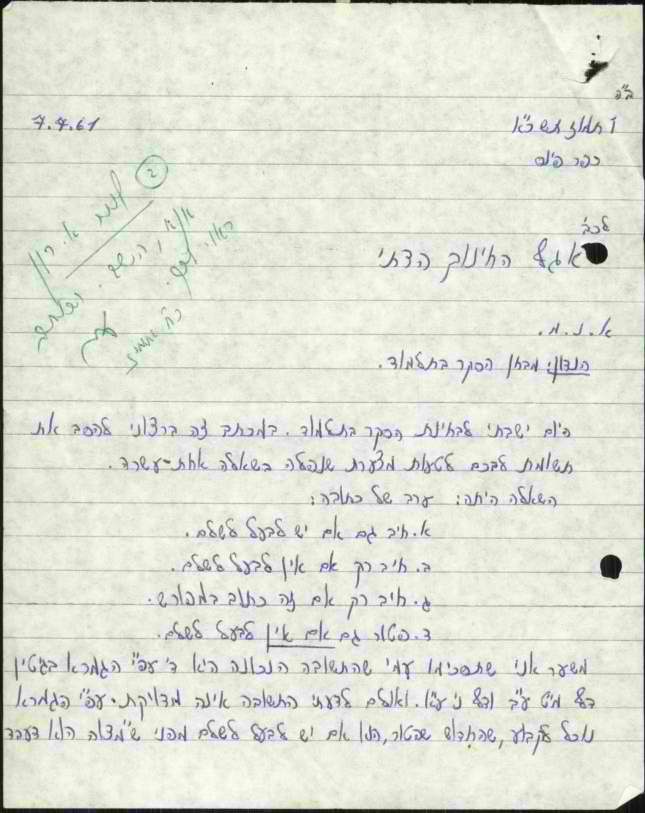 ב"ה
7.7.61
ז' תמוז תשכ"א
כפר פינס
לכב'
אגף החינוך הדתי
א. נ. מ.
הנדון: מבחן הסקר בתלמוד.
היום ישבתי לבחינת הסקר בתלמוד. במכתב זה ברצוני להסב את
תשומת לבכם לטעות מצערת שנפלה בשאלה אחת-עשרה.
השאלה היתה: ערב של כתובה:
א. חיב גם אם יש לבעל לשלם.
ב. חיב רק אם אין לבעל לשלם.
ג. חיב רק אם זה כתוב במפורש.
ד. פטור גם אם אין לבעל לשלם.
משער אני שתסכימו עמי שהתשובה הנכונה היא ד' עפ"י הגמרא בגיטין
דף מ"ט ע"ב ודף נ' ע"א. ואולם לדעתי התשובה אינה מדויקת. עפ"י הגמרא
נוכל לקבוע, שהחדוש שפטור, הוא אם יש לבעל לשלם מפני ש"מצוה הוא דעבד
2